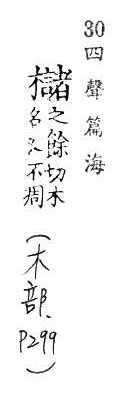 30四聲篇海
櫧之餘切木
名冬不凋
(木部.P299)